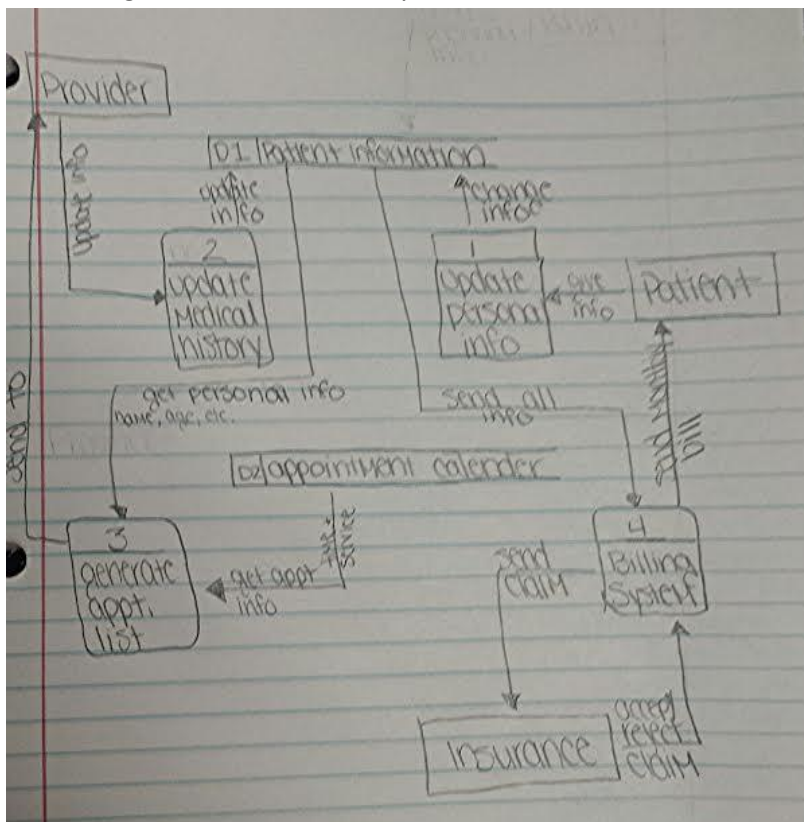 Provider
D1 Patient information
update info
update
info
change
info
2
update
Medical
history
1
update
personal
info
give
info
Patient
get personal info
name, age, etc.
send all
info
send to
bill
D2 appointment calender
time +
service
3
generate
appt.
list
get appt
info
send
claim
4
Billing
System
Insurance
accept/
reject
claim